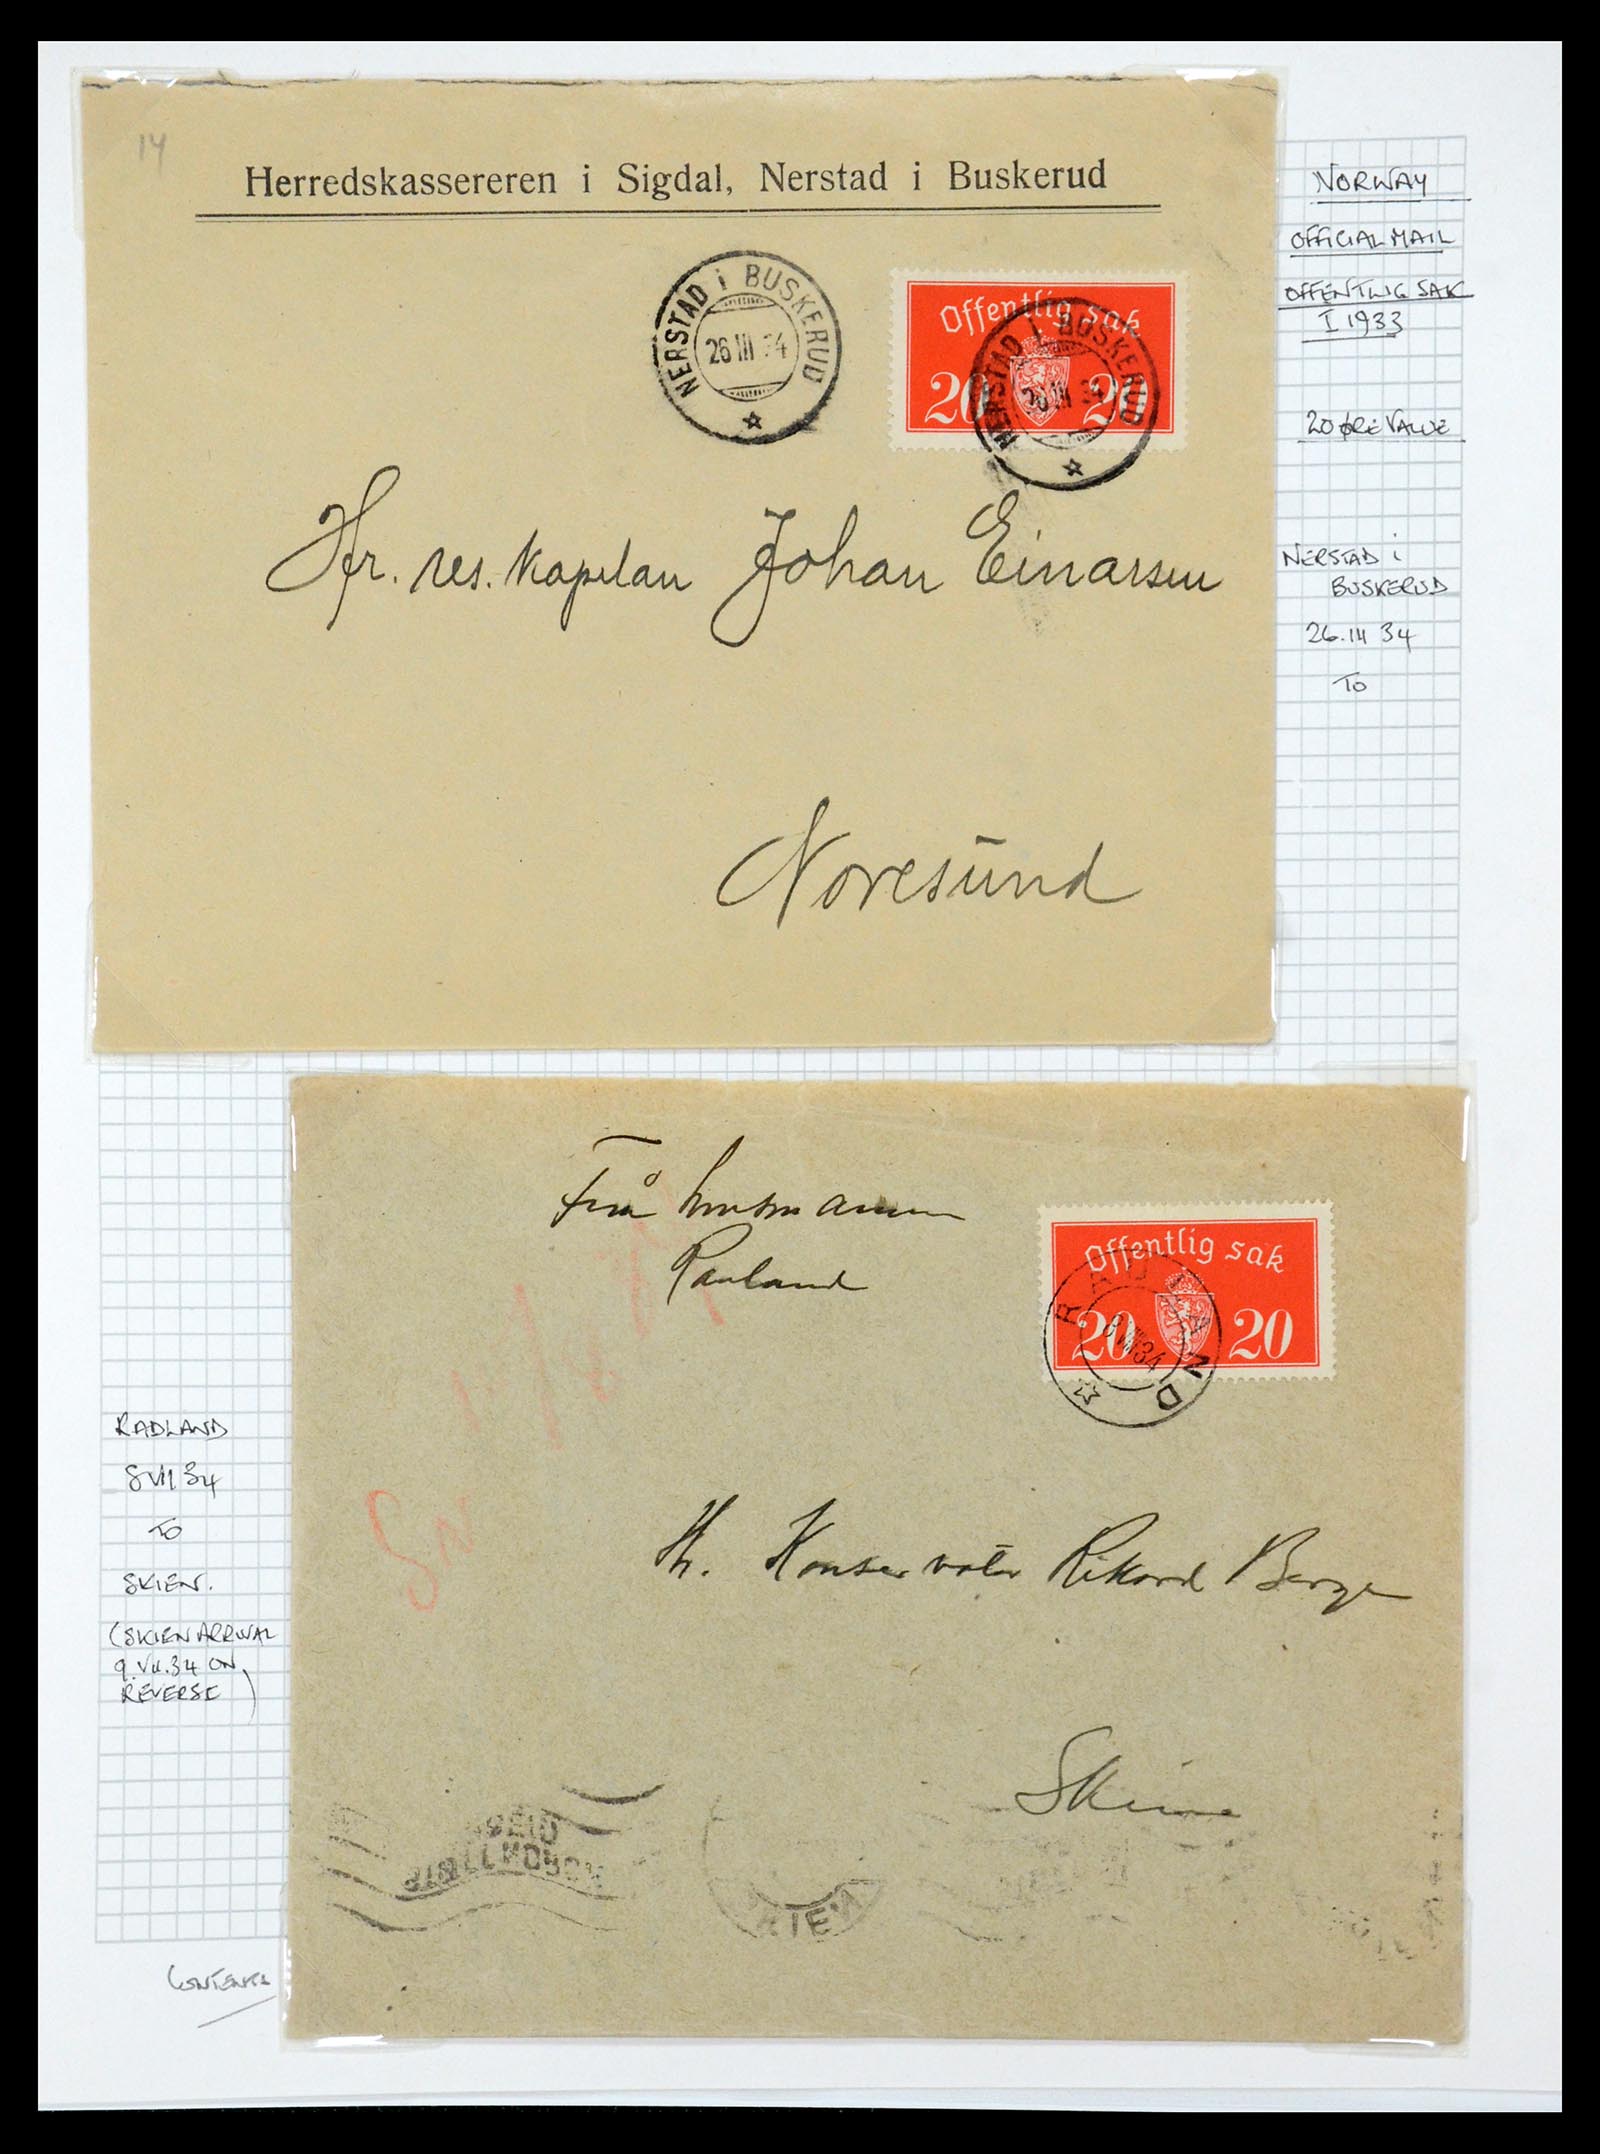 14
Herredskassereren i Sigdal, Nerstad i Buskerud
NERSTAD i BUSKERUD
26 III 34
Offentlig sak
20 20
NERSTAD i BUSKERUD
26 III 34
Hr. res. kapelan Johan Einarsen
Noresund
NORWAY
OFFICIAL MAIL
OFFENTLIG SAK
I 1933
20 ØRE VALUE
NERSTAD i
BUSKERUD
26.III 34
TO
Frå
Rauland
Offentlig sak
20 20
34
Hr. Konservator Rikard Berge
Skien
SKIEN
RADLAND
8 VII 34
TO
SKIEN.
(SKIEN ARRIVAL
9.VII.34 ON
REVERSE)
CONTENTS